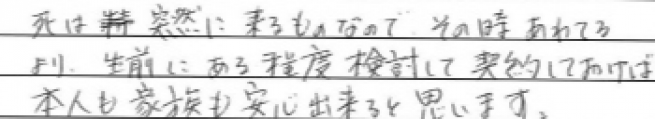 死は突然に来るものなので、その時あわてる
より、生前にある程度検討して契約しておけば
本人も家族も安心出来ると思います。